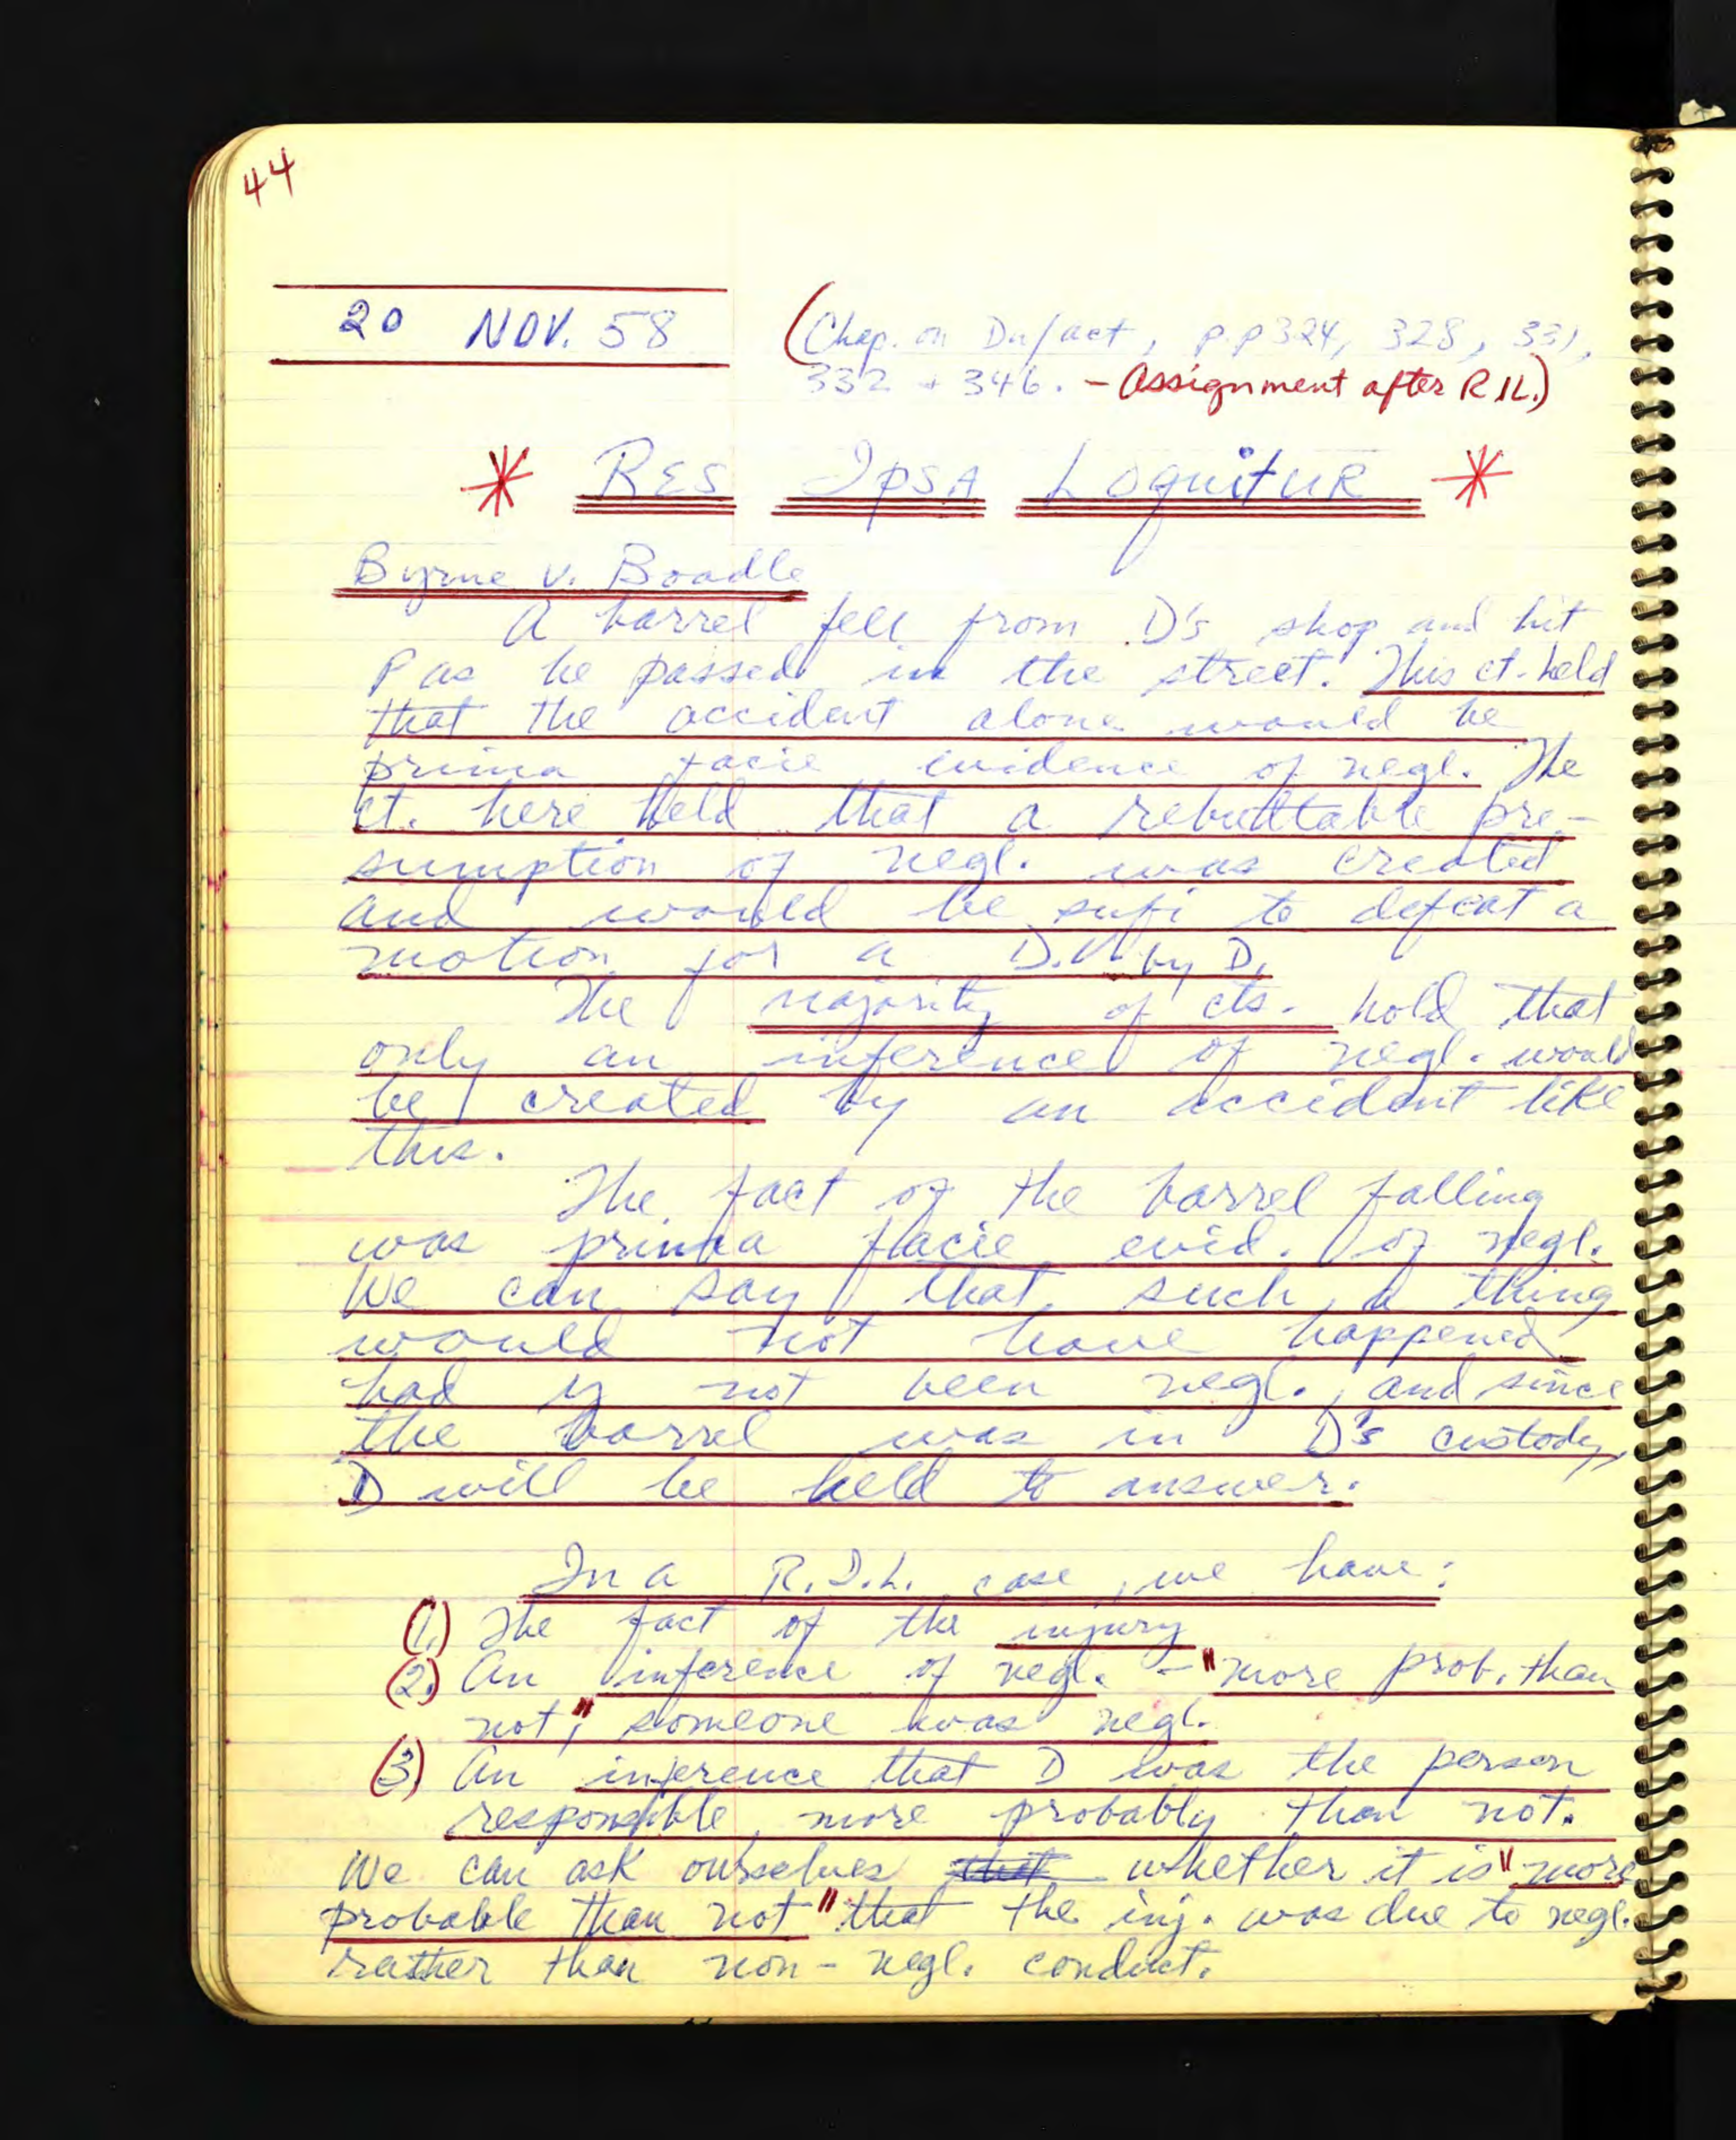 44
20 NOV. 58
(Chap. on Du/act, p.p 324, 328, 331,
332 + 346. - Assignment after R.I.L.)
* RES IPSA LOquitUR *
Byrne v. Boadle
A barrel fell from D's shop and hit
P as he passed in the street. This ct. held
that the accident alone would be
prima facie evidence of negl. The
ct. here held that a rebuttable pre-
sumption of negl. was created
and would be sufi to defeat a
motion for a D.V. by D.
The majority of cts. hold that
only an inference of negl. would
be created by an accident like
this.
The fact of the barrel falling
was prima facie evid. of negl.
We can say that such a thing
would not have happened
had not been negl., and since
the barrel was in D's custody,
D will be held to answer.
In a R.I.L. case, we have:
(1.) The fact of the injury
(2.) An inference of negl. - "more prob. than
not," someone was negl.
(3) An inference that D was the person
responsible, more probably than not.
We can ask ourselves that whether it is "more
probable than not" that the inj. was due to negl.
rather than non-negl. conduct.